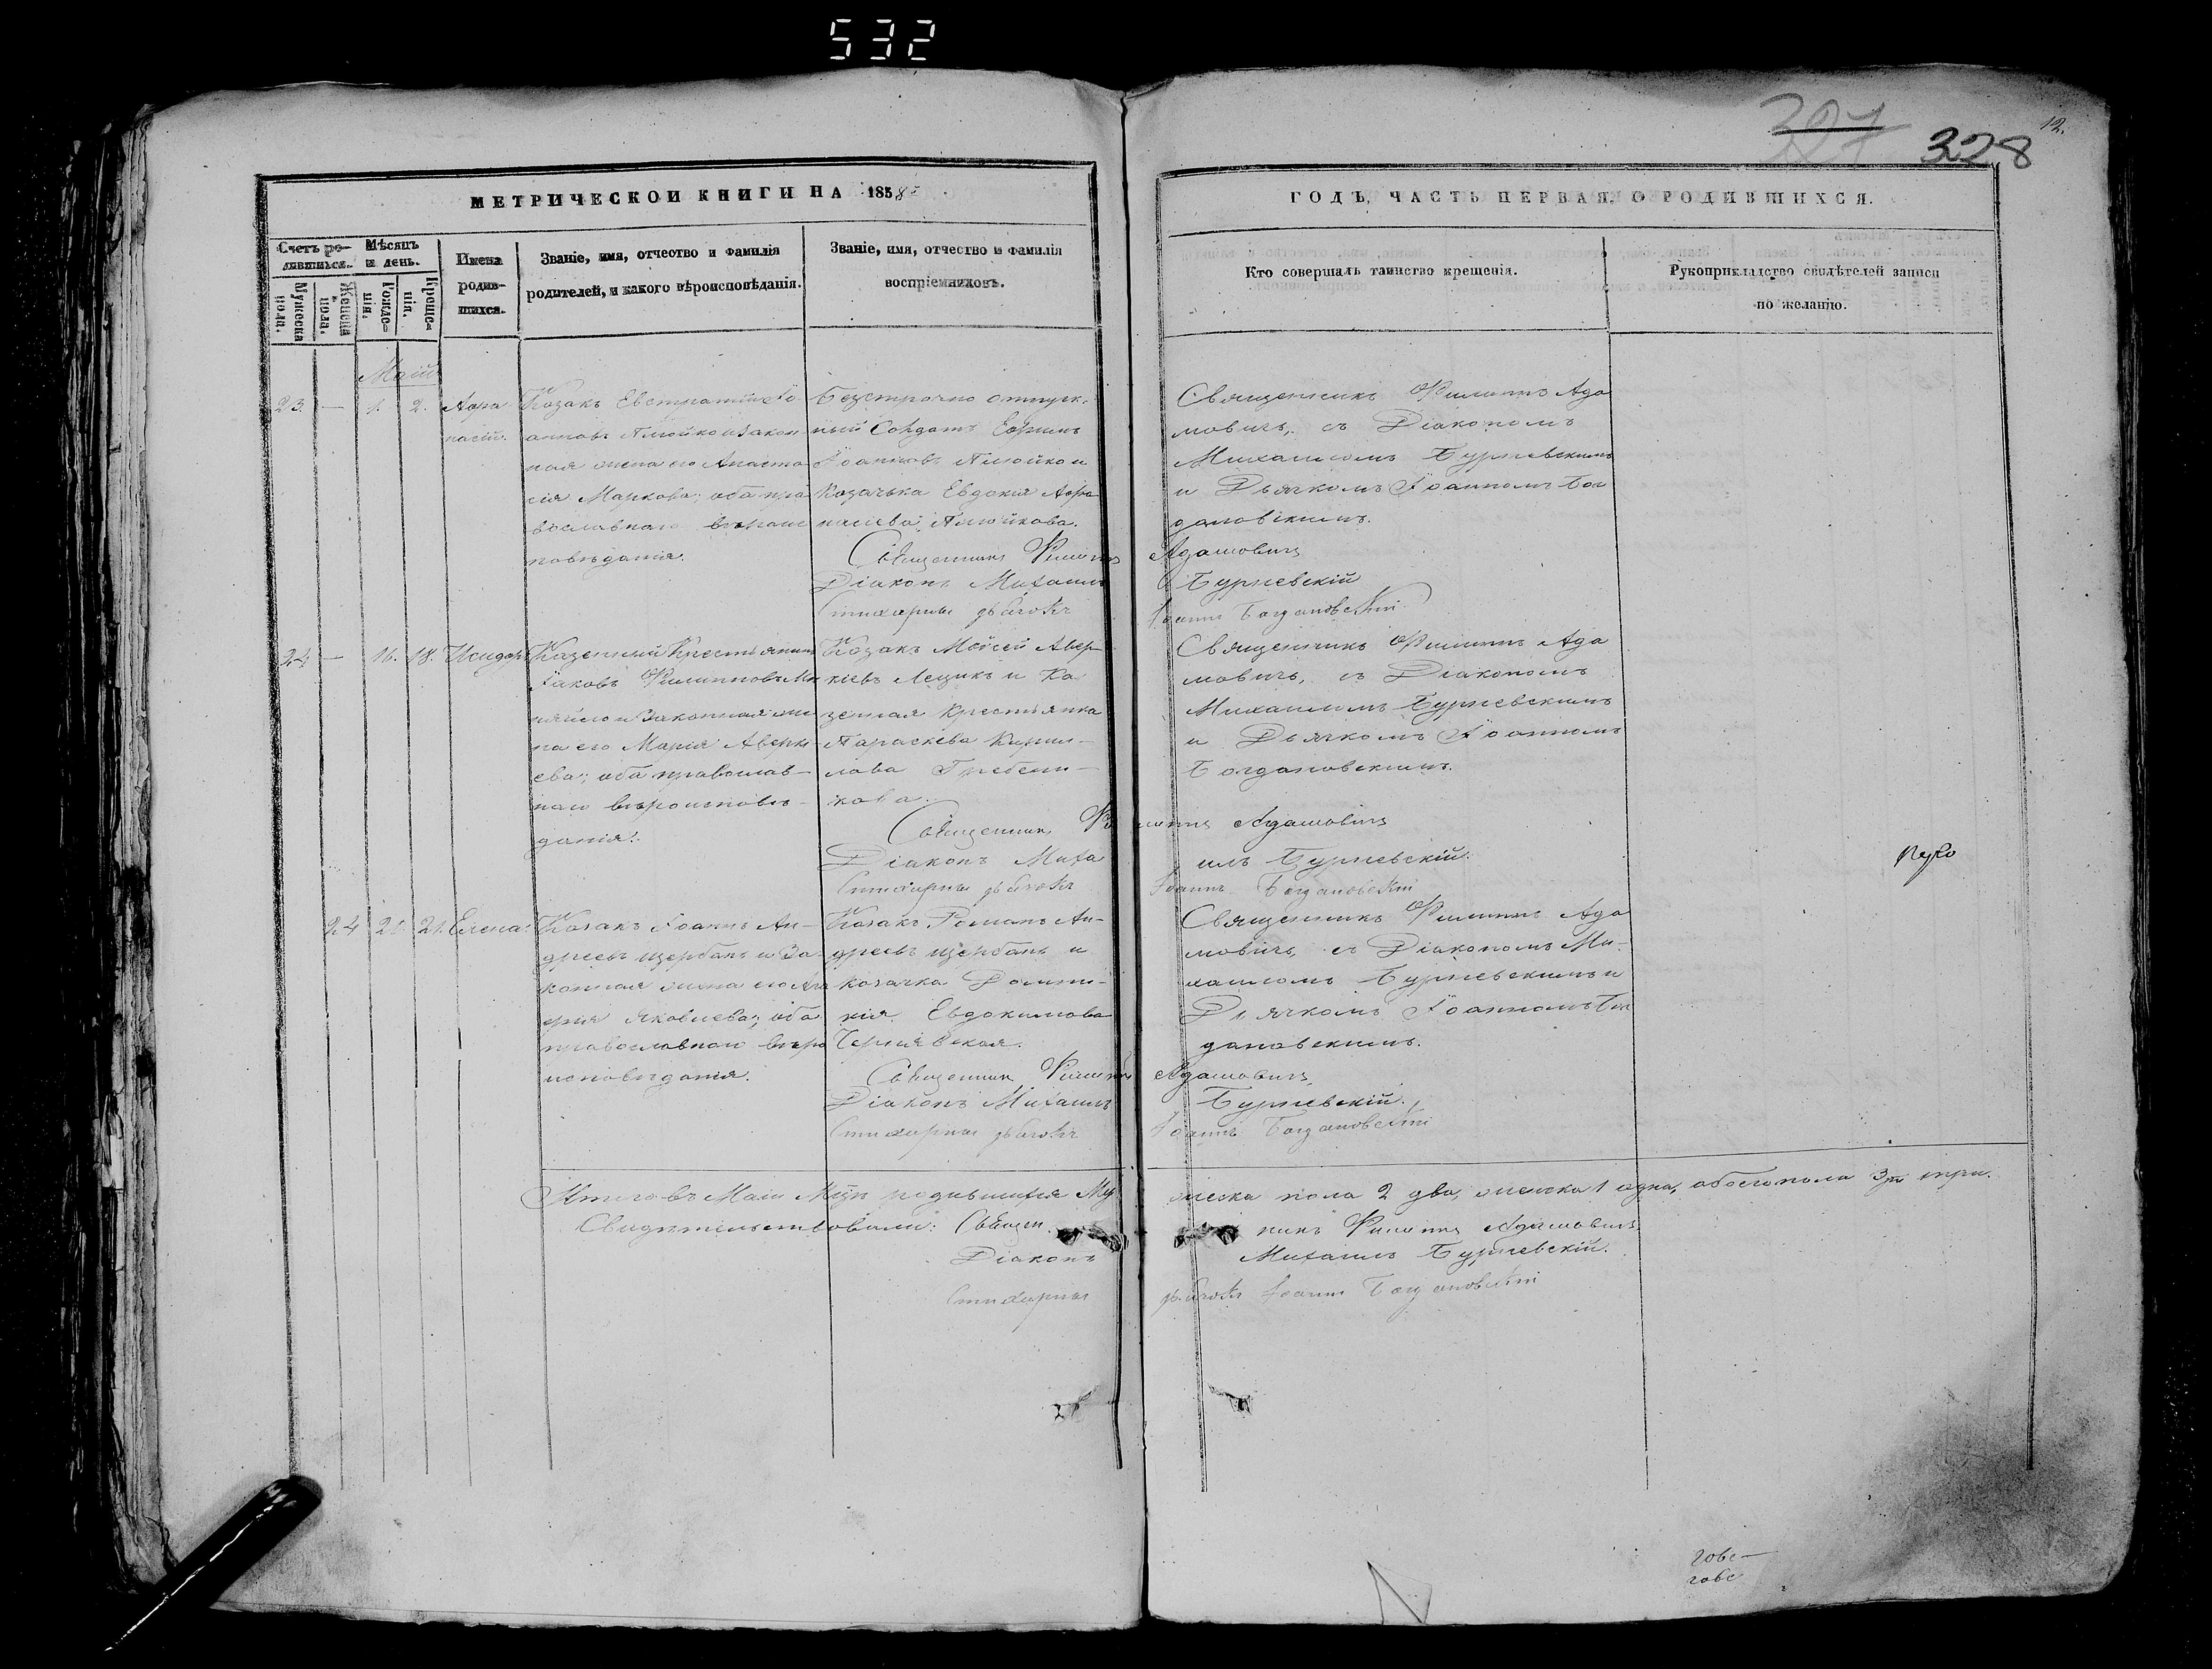 532
12.
327
328
МЕТРИЧЕСКОЙ КНИГИ НА 1858й
ГОДЪ, ЧАСТЬ ПЕРВАЯ, О РОДИВШИХСЯ.
Счетъ родившихся.
Мѣсяцъ и день.
Мужеска пола.
Женска пола.
Рожденія.
Крещенія.
Имена родившихся.
Званіе, имя, отчество и фамилія
родителей, и какого вѣроисповѣданія.
Званіе, имя, отчество и фамилія
воспріемниковъ.
Кто совершалъ таинство крещенія.
Рукоприкладство свидѣтелей записи
по желанію.
Маій
23. — 1. 2.
Аѳанасій.
Козакъ Евстратій Іо
анновъ и закон
ная жена его Анаста
сія Маркова; оба пра
вославнаго вѣроис
повѣданія.
Безсрочно отпуск
ный Солдатъ Ефимъ
Іоанновъ и
Козачька Евдокія Аѳа
насіева
Священникъ Филиппъ Ада
мовичъ, съ Діакономъ
Михаиломъ Бурневскимъ
и Дьячкомъ Іоанномъ Бог
дановскимъ.
Священникъ Филиппъ Адамовичъ
Діаконъ Михаилъ Бурневскій
Стихарны дьячокъ Іоаннъ Богдановскій
24 — 16. 18. Исидоръ
Казенный Крестьянинъ
Іаковъ Филипповъ
и Законная же
на его Марія Аверкі
ева; оба православ-
наго вѣроисповѣ-
данія.
Козакъ Моисей Авер-
кіевъ Лещикъ и Ка
зенная Крестьянка
Параскева Кирил-
лова Гребени-
кова.
Священникъ Филиппъ Ада
мовичъ, съ Діакономъ
Михаиломъ Бурневскимъ
и Дьячкомъ Іоанномъ
Богдановскимъ.
Священникъ Филиппъ Адамовичъ
Діаконъ Михаилъ Бурневскій.
Стихарны дьячокъ Іоаннъ Богдановскій
24 21. Елена.
Козакъ Іоаннъ Ан-
дреевъ Щербань и За
конная жена его
Яковлева; оба
православнаго вѣро
исповѣданія.
Козакъ Романъ Ан-
дреевъ Щербань и
козачка Домни-
кія Евдокимова
Чернявская.
Священникъ Филиппъ Ада
мовичъ, съ Діакономъ Ми-
хаиломъ Бурневскимъ и
Дьячкомъ Іоанномъ Бог
дановскимъ.
Священникъ Филиппъ Адамовичъ
Діаконъ Михаилъ Бурневскій.
Стихарны дьячокъ Іоаннъ Богдановскій
Итого въ Маіи Мцѣ родившихся Мужеска пола 2 два, женска 1 одна, обоего пола 3 три.
Свидѣтельствовали: Священникъ Филиппъ Адамовичъ
Діаконъ Михаилъ Бурневскій.
Стихарны дьячокъ Іоаннъ Богдановскій